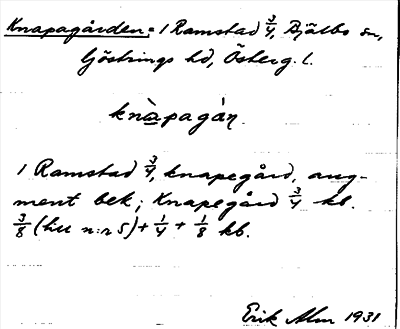 Knapagården: 1 Ramstad 3/4, Bjälbo sn,
Göstrings hd, Österg. l.
knàpagàn.
1 Ramstad 3/4, knapegård, aug-
ment bek; Knapegård 3/4 kb.
3/8 (hu n:r 5) + 1/4 + 1/8 kb.
Erik Alm 1931